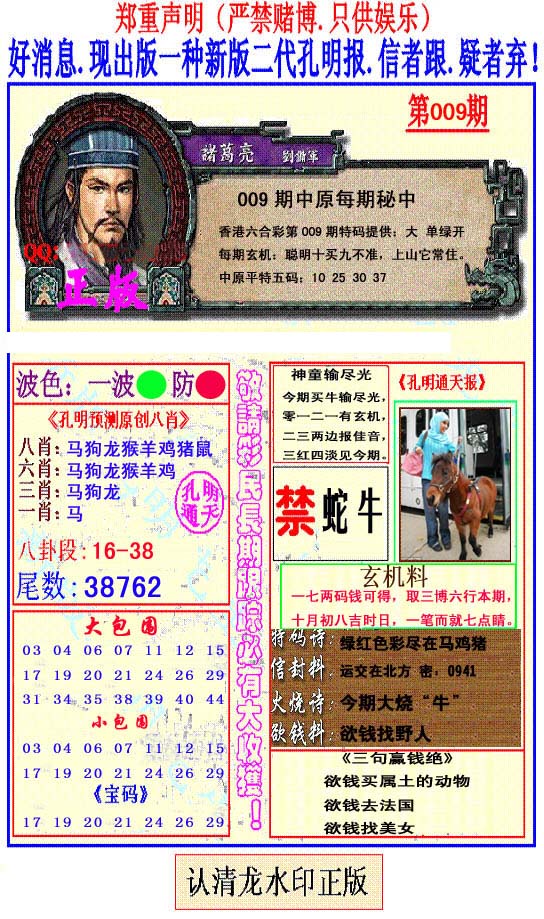 郑重声明（严禁赌博.只供娱乐）
好消息.现出版一种新版二代孔明报.信者跟.疑者弃!
第009期
諸葛亮 劉備軍
009 期中原每期秘中
香港六合彩第 009 期特码提供：大 单绿开
每期玄机：聪明十买九不准，上山它常住。
中原平特五码：10 25 30 37
QQ:
正版
波色：一波 防
《孔明预测原创八肖》
八肖：马狗龙猴羊鸡猪鼠
六肖：马狗龙猴羊鸡
三肖：马狗龙
一肖：马
孔明
通天
八卦段:16-38
尾数:38762
大包围
03 04 06 07 11 12 15
17 19 20 21 24 26 29
31 34 35 38 39 40 44
小包围
03 04 06 07 11 12 15
17 19 20 21 24 26 29
《宝码》
17 19 20 21 24 26 29
敬請彩民長期跟踪必有大收獲！
神童输尽光
今期买牛输尽光，
零一二一有玄机，
二三两边报佳音，
三红四淡见今期。
《孔明通天报》
禁 蛇牛
玄机料
一七两码钱可得，取三博六行本期，
十月初八吉时日，一笔而就七点睛。
特码诗：绿红色彩尽在马鸡猪
信封料：运交在北方 密．0941
火烧诗：今期大烧“牛”
欲钱料：欲钱找野人
《三句赢钱绝》
欲钱买属土的动物
欲钱去法国
欲钱找美女
认清龙水印正版